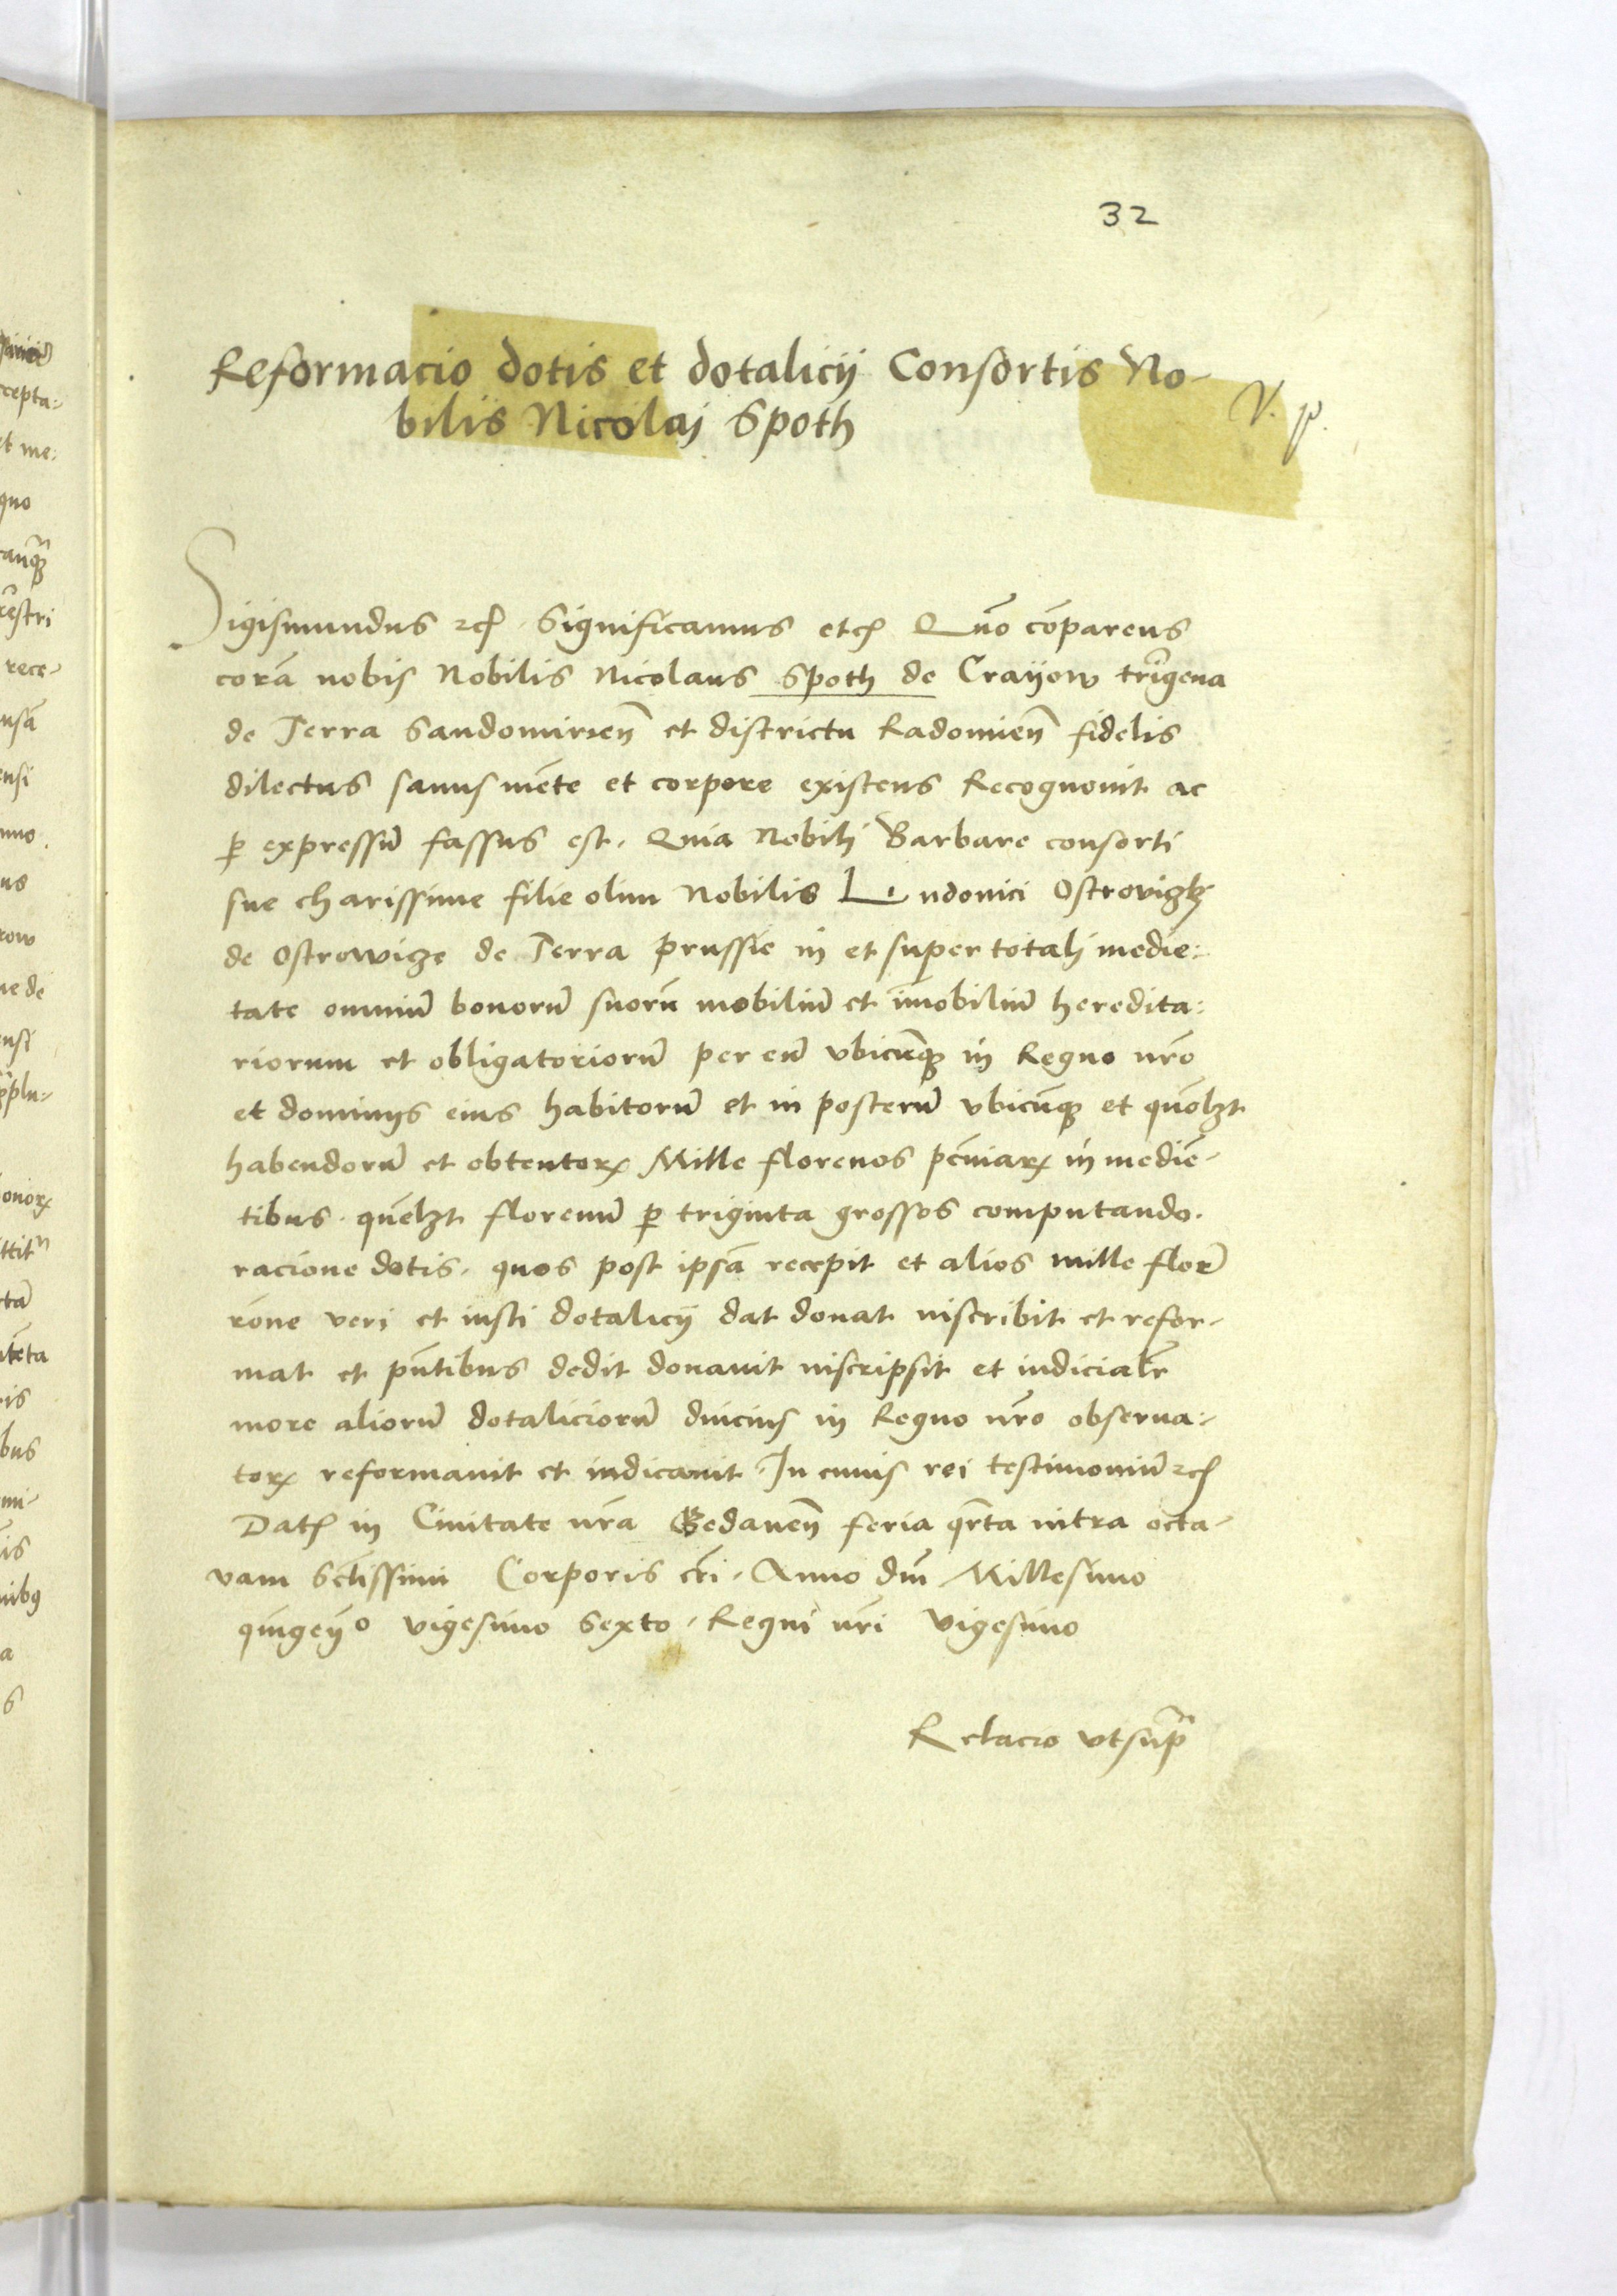 32
Reformacio dotis et dotalicij Consortis No-
bilis Nicolai Spoth
V. p.
Sigismundus etc. Significamus etc. Quo͂ co͂parens
cora͂ nobis Nobilis Nicolaus Spoth de Crayow terrigena
de Terra Sandomirien͂ et districtu Radomien͂ fidelis
dilectus sanus me͂te et corpore existens Recognouit ac
p̱ expressu͂ fassus est. Quia Nobili Barbare consorti
sue charissime filie olim Nobilis Ludouici Ostrovizky
de Ostrowize de Terra prussie in et super totali medie:
tate omniu͂ bonoru͂ suoru͂ mobiliu͂ et i͂mobiliu͂ heredita:
riorum et obligatorioru͂ per eu͂ vbicu͂qꝫ in Regno nr͂o
et dominijs eius habitoru͂ et in posteru͂ vbicu͂qꝫ et quo͂lꝫt
habendoru͂ et obtentoꝝ Mille florenos pecu͂niaꝝ in medie͂-
tibus. que͂lꝫt florenu͂ p̱ triginta grossos computando.
racione dotis. quos post ipsa͂ recepit et alios mille flor͂
ro͂ne veri et iusti dotalicij dat donat inscribit et refor-
mat et pn͂tibus dedit donauit inscripsit et iudicialr͂
more alioru͂ dotalicioru͂ in Regno nr͂o obserua:
toꝝ reformauit et indicauit. In cuius rei testimoniu͂ etc.
Dat. in Ciuitate nr͂a Gedanen͂ feria qr͂ta intra octa-
vam Sct͂issimi Corporis cr͂i. Anno dn͂i Millesimo
quingen͂o vigesimo Sexto. Regni nr͂i vigesimo
Relacio vt supra